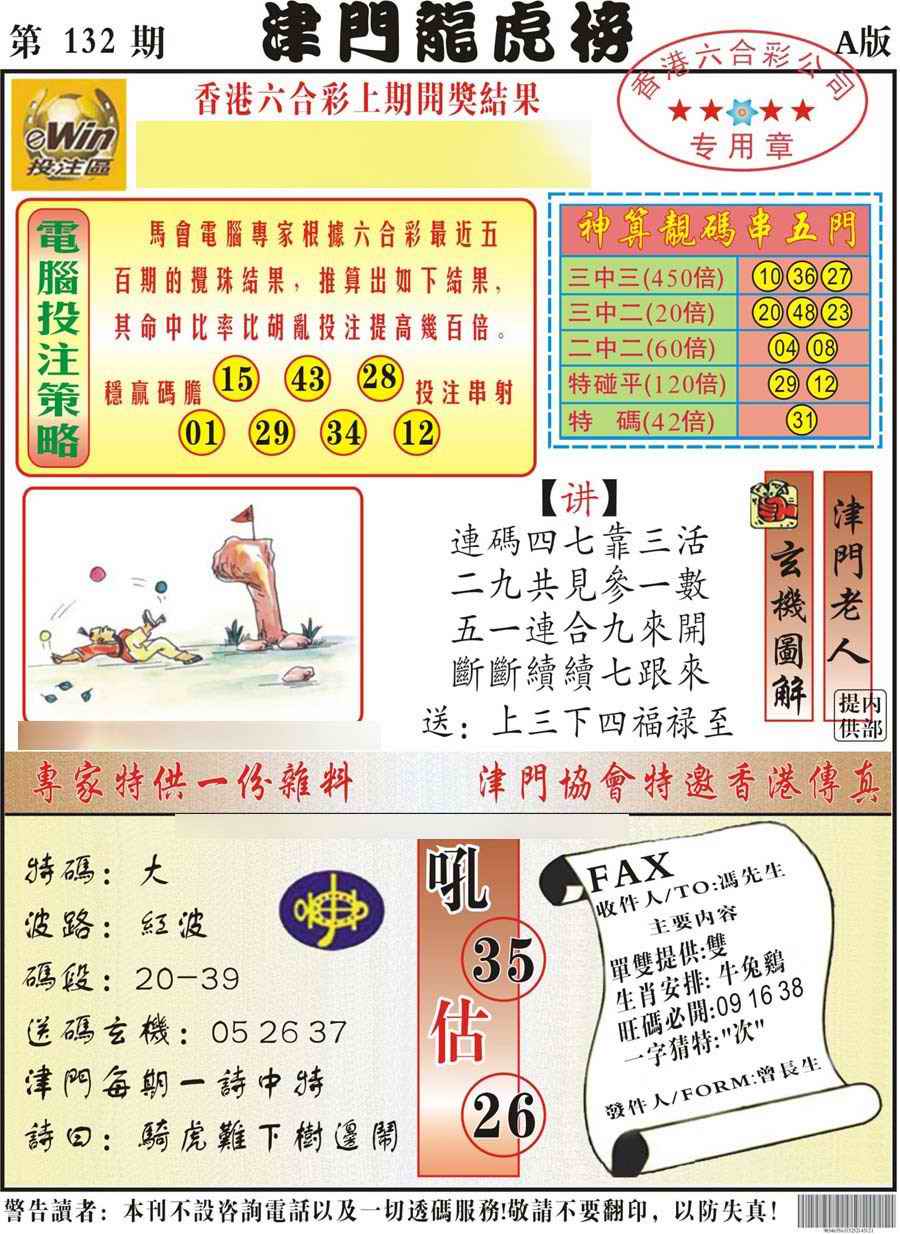 第 132 期
津門龍虎榜
A版
香港六合彩公司
专用章
eWin
投注區
香港六合彩上期開獎結果
電腦投注策略
馬會電腦專家根據六合彩最近五
百期的攪珠結果，推算出如下結果，
其命中比率比胡亂投注提高幾百倍。
穩贏碼膽 15 43 28 投注串射
01 29 34 12
神算靚碼串五門
三中三(450倍) 10 36 27
三中二(20倍) 20 48 23
二中二(60倍) 04 08
特碰平(120倍) 29 12
特 碼(42倍) 31
【讲】
連碼四七靠三活
二九共見參一數
五一連合九來開
斷斷續續七跟來
送：上三下四福禄至
玄機圖解
津門老人
内部提供
專家特供一份雜料
津門協會特邀香港傳真
特碼：大
波路：紅波
碼段：20-39
送碼玄機：05 26 37
津門每期一詩中特
詩曰：騎虎難下樹邊鬧
吼
35
估
26
FAX
收件人/TO:馮先生
主要内容
單雙提供:雙
生肖安排:牛兔鷄
旺碼必開:09 16 38
一字猜特:"次"
發件人/FORM:曾長生
警告讀者：本刊不設咨詢電話以及一切透碼服務!敬請不要翻印，以防失真!